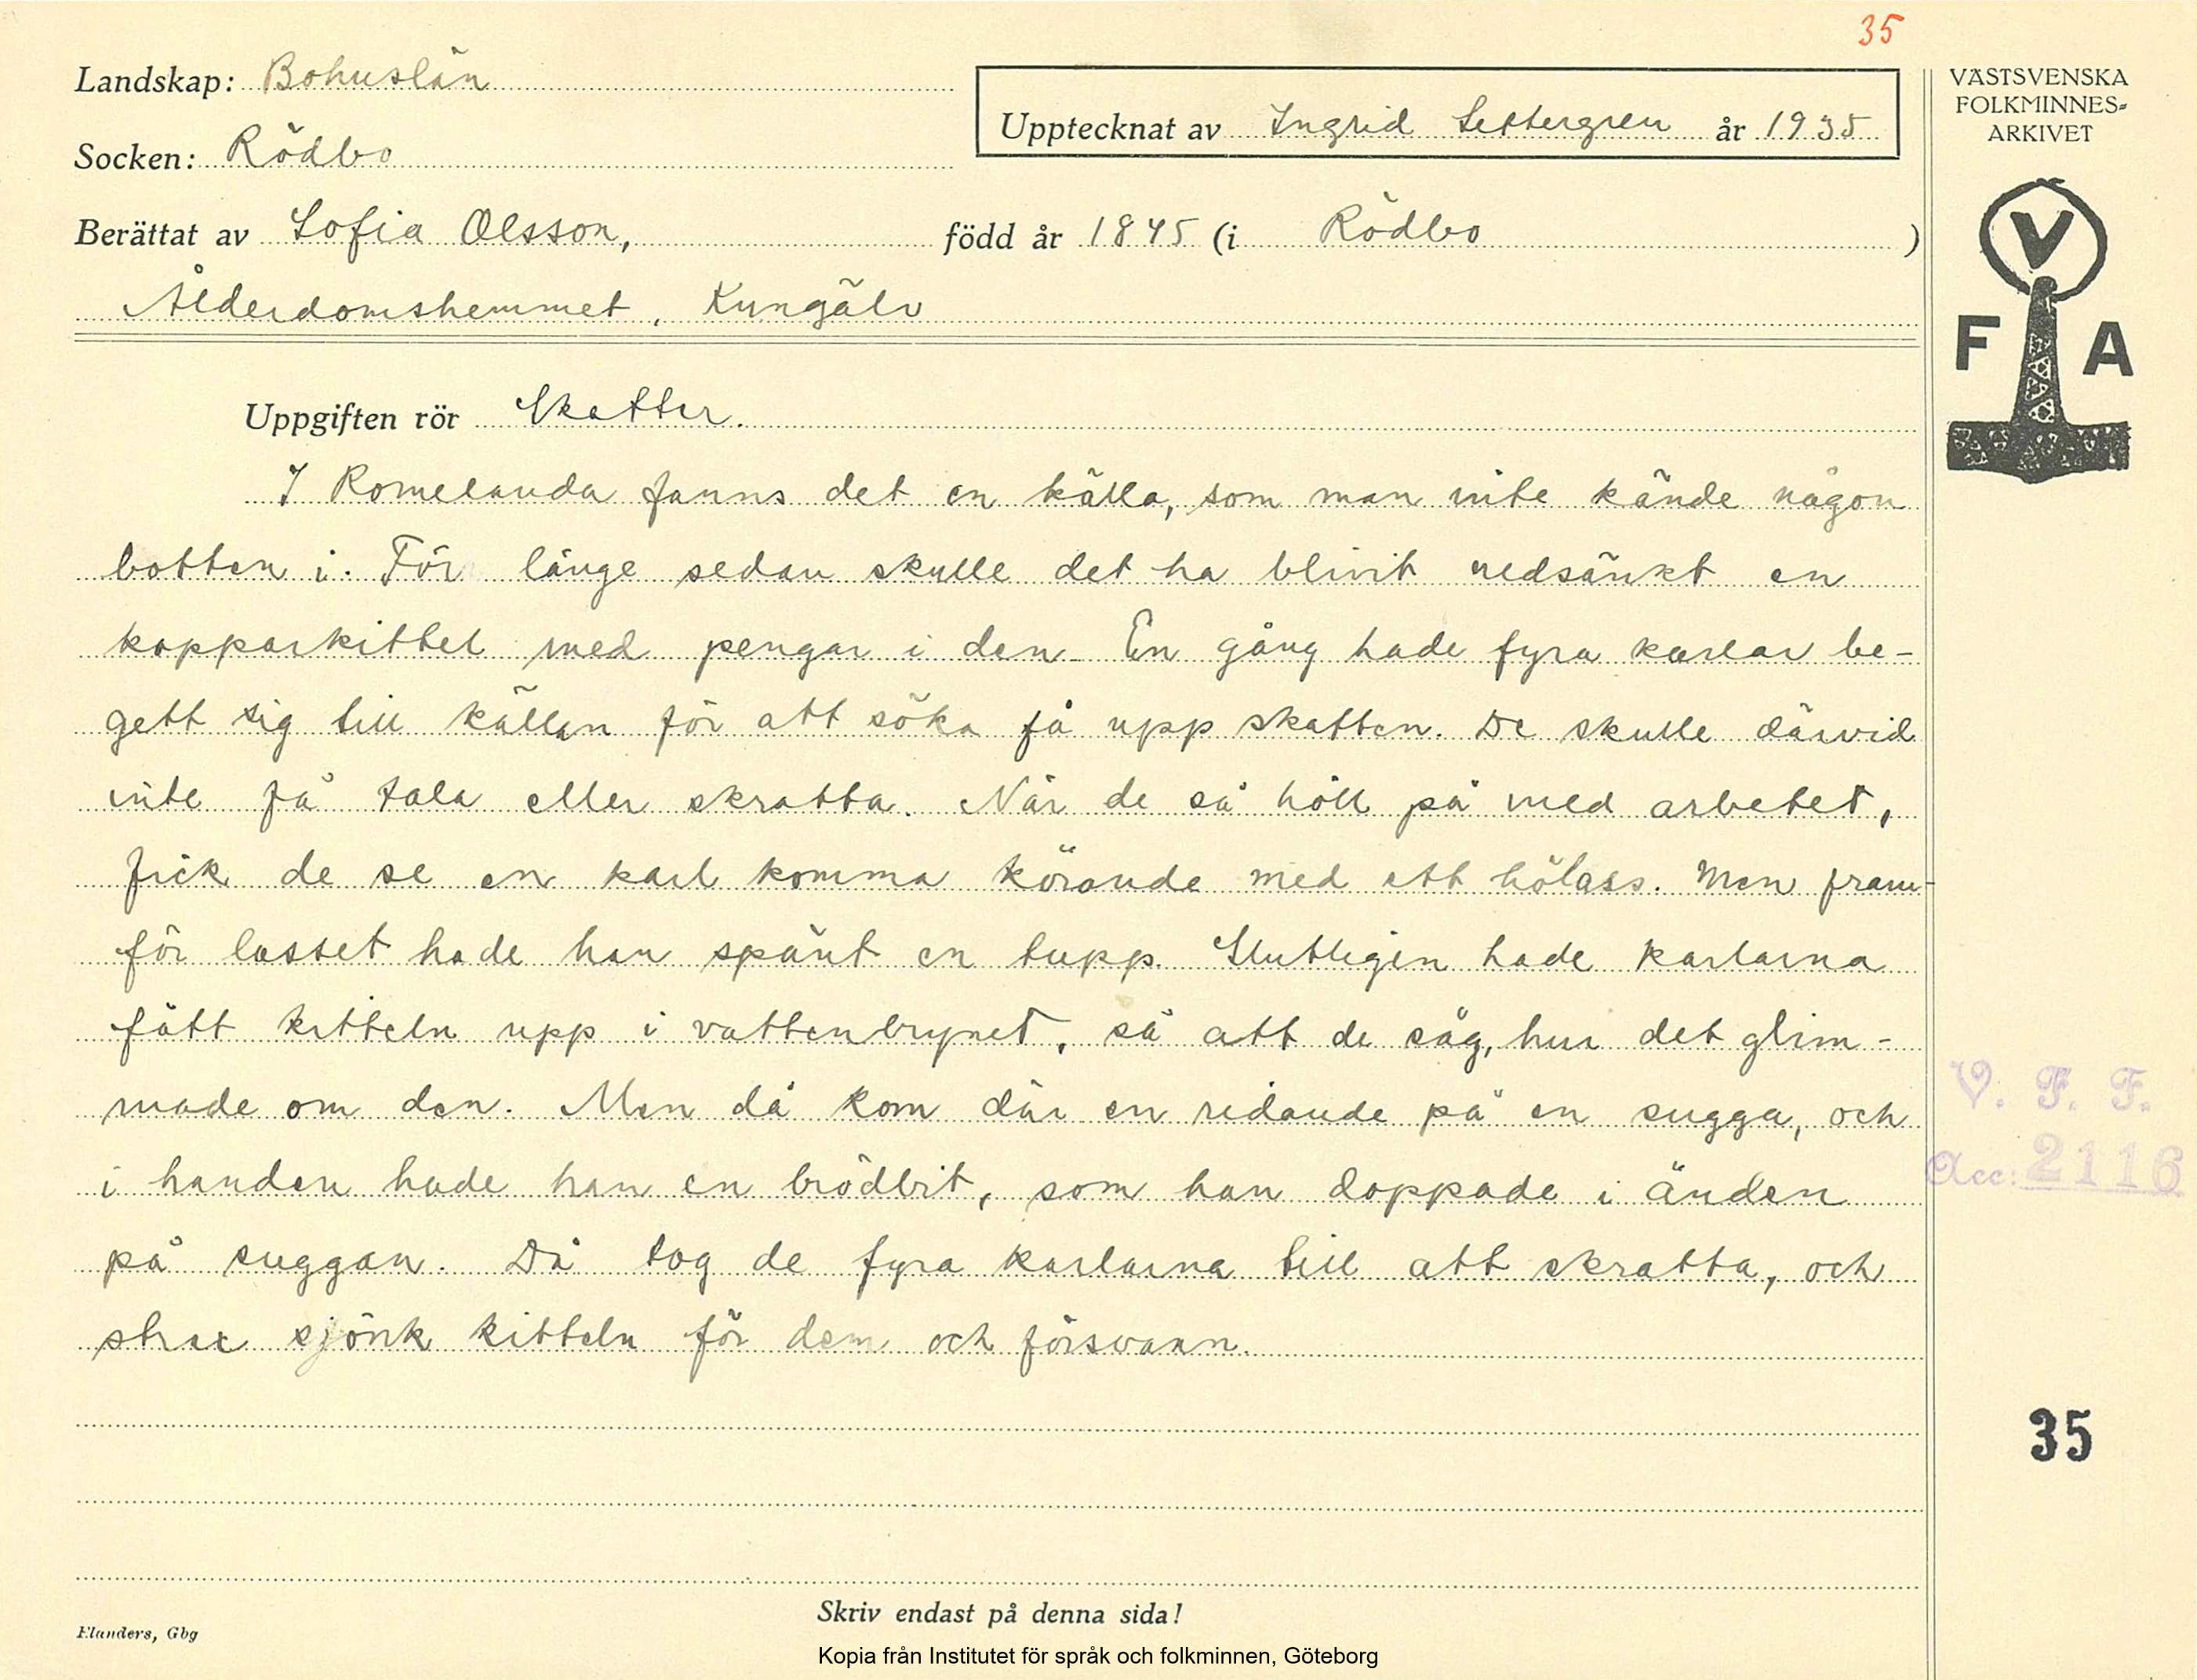 35
Landskap: Bohuslän
Socken: Rödbo
Upptecknat av Ingrid Settergren år 1935
VÄSTSVENSKA
FOLKMINNES-
ARKIVET
Berättat av Sofia Olsson, född år 1845 (i Rödbo )
Ålderdomshemmet, Kungälv
V
F A
Uppgiften rör Skatter.
I Romelanda fanns det en källa, som man inte kände någon
botten i. För länge sedan skulle det ha blivit nedsänkt en
kopparkittel med pengar i den. En gång hade fyra karlar be-
gett sig till källan för att söka få upp skatten. De skulle därvid
inte få tala eller skratta. När de så höll på med arbetet,
fick de se en karl komma körande med ett hölass. Men fram-
för lasset hade han spänt en tupp. Slutligen hade karlarna
fått kitteln upp i vattenbrynet, så att de såg, hur det glim-
made om den. Men då kom där en ridande på en sugga, och
i handen hade han en brödbit, som han doppade i änden
på suggan. Då tog de fyra karlarna till att skratta, och
strax sjönk kitteln för dem och försvann.
V. F. F.
Acc: 2116
35
Skriv endast på denna sida!
Elanders, Gbg
Kopia från Institutet för språk och folkminnen, Göteborg